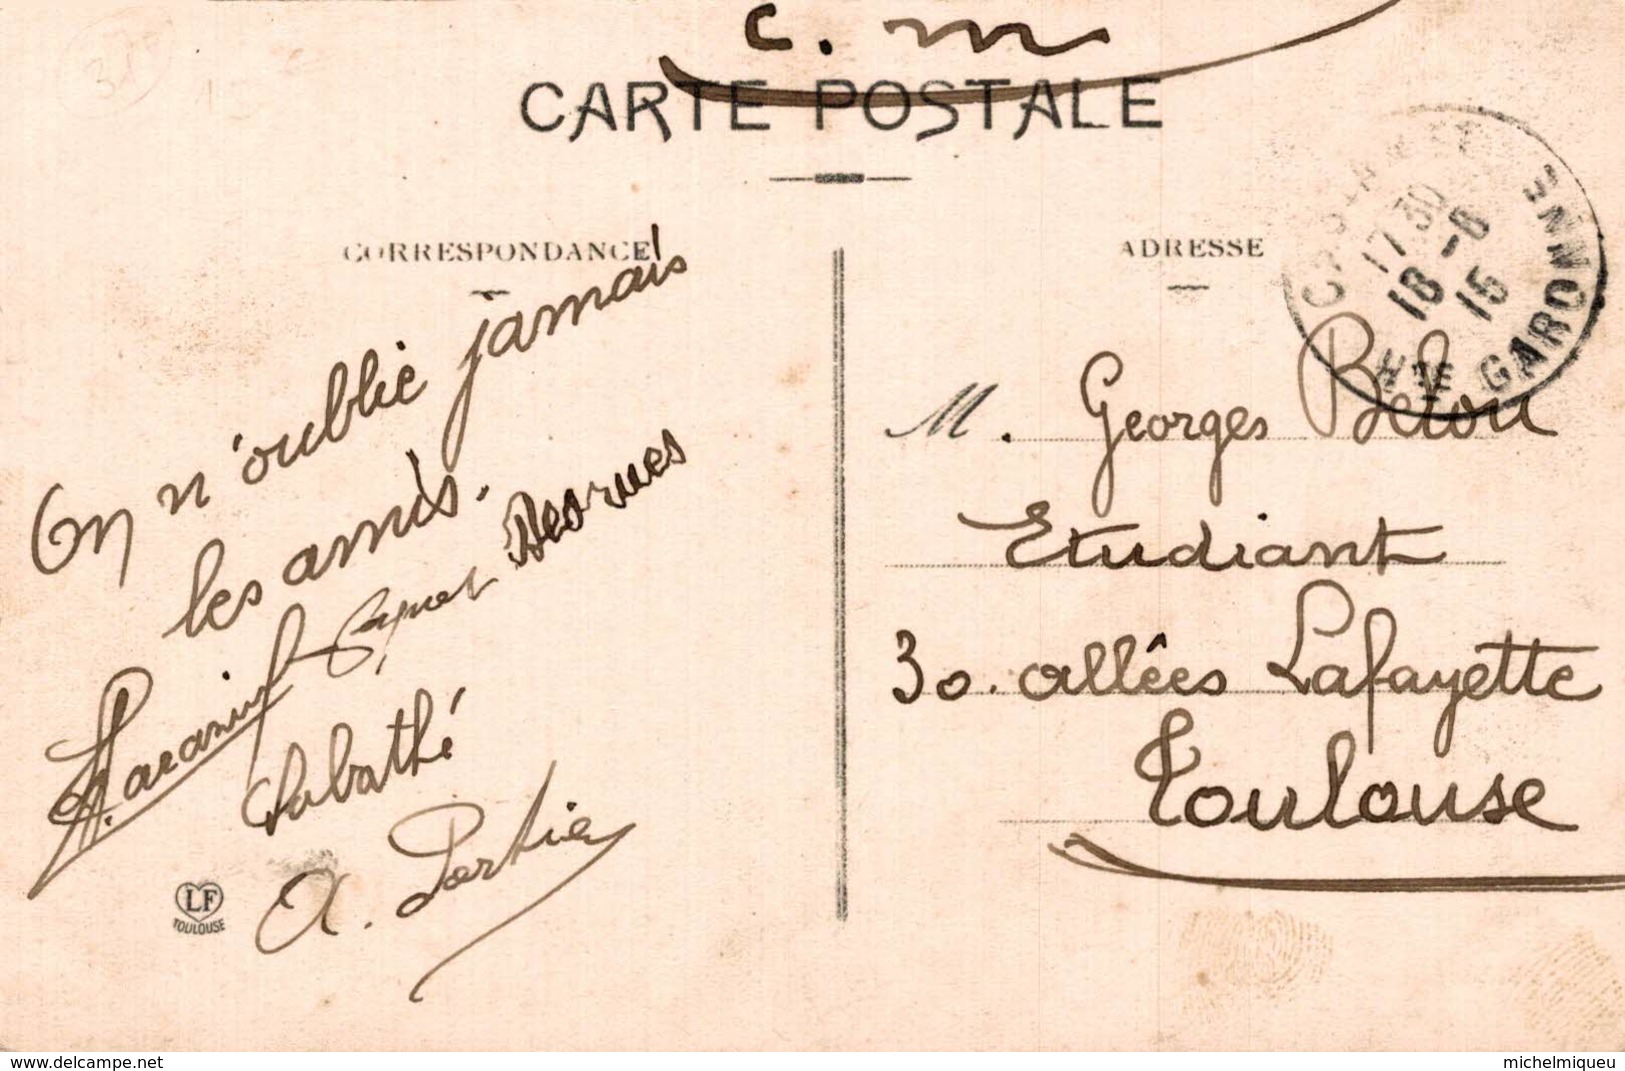 c. m
CARTE POSTALE
CORRESPONDANCE
ADRESSE
17 30
18 -8
15
Hte GARONNE
On n'oublie jamais
les amis.
Desrues
Sabathé
A.
LF
TOULOUSE
M. Georges
Etudiant
30. allées Lafayette
Toulouse
delcampe.net
michelmiqueu